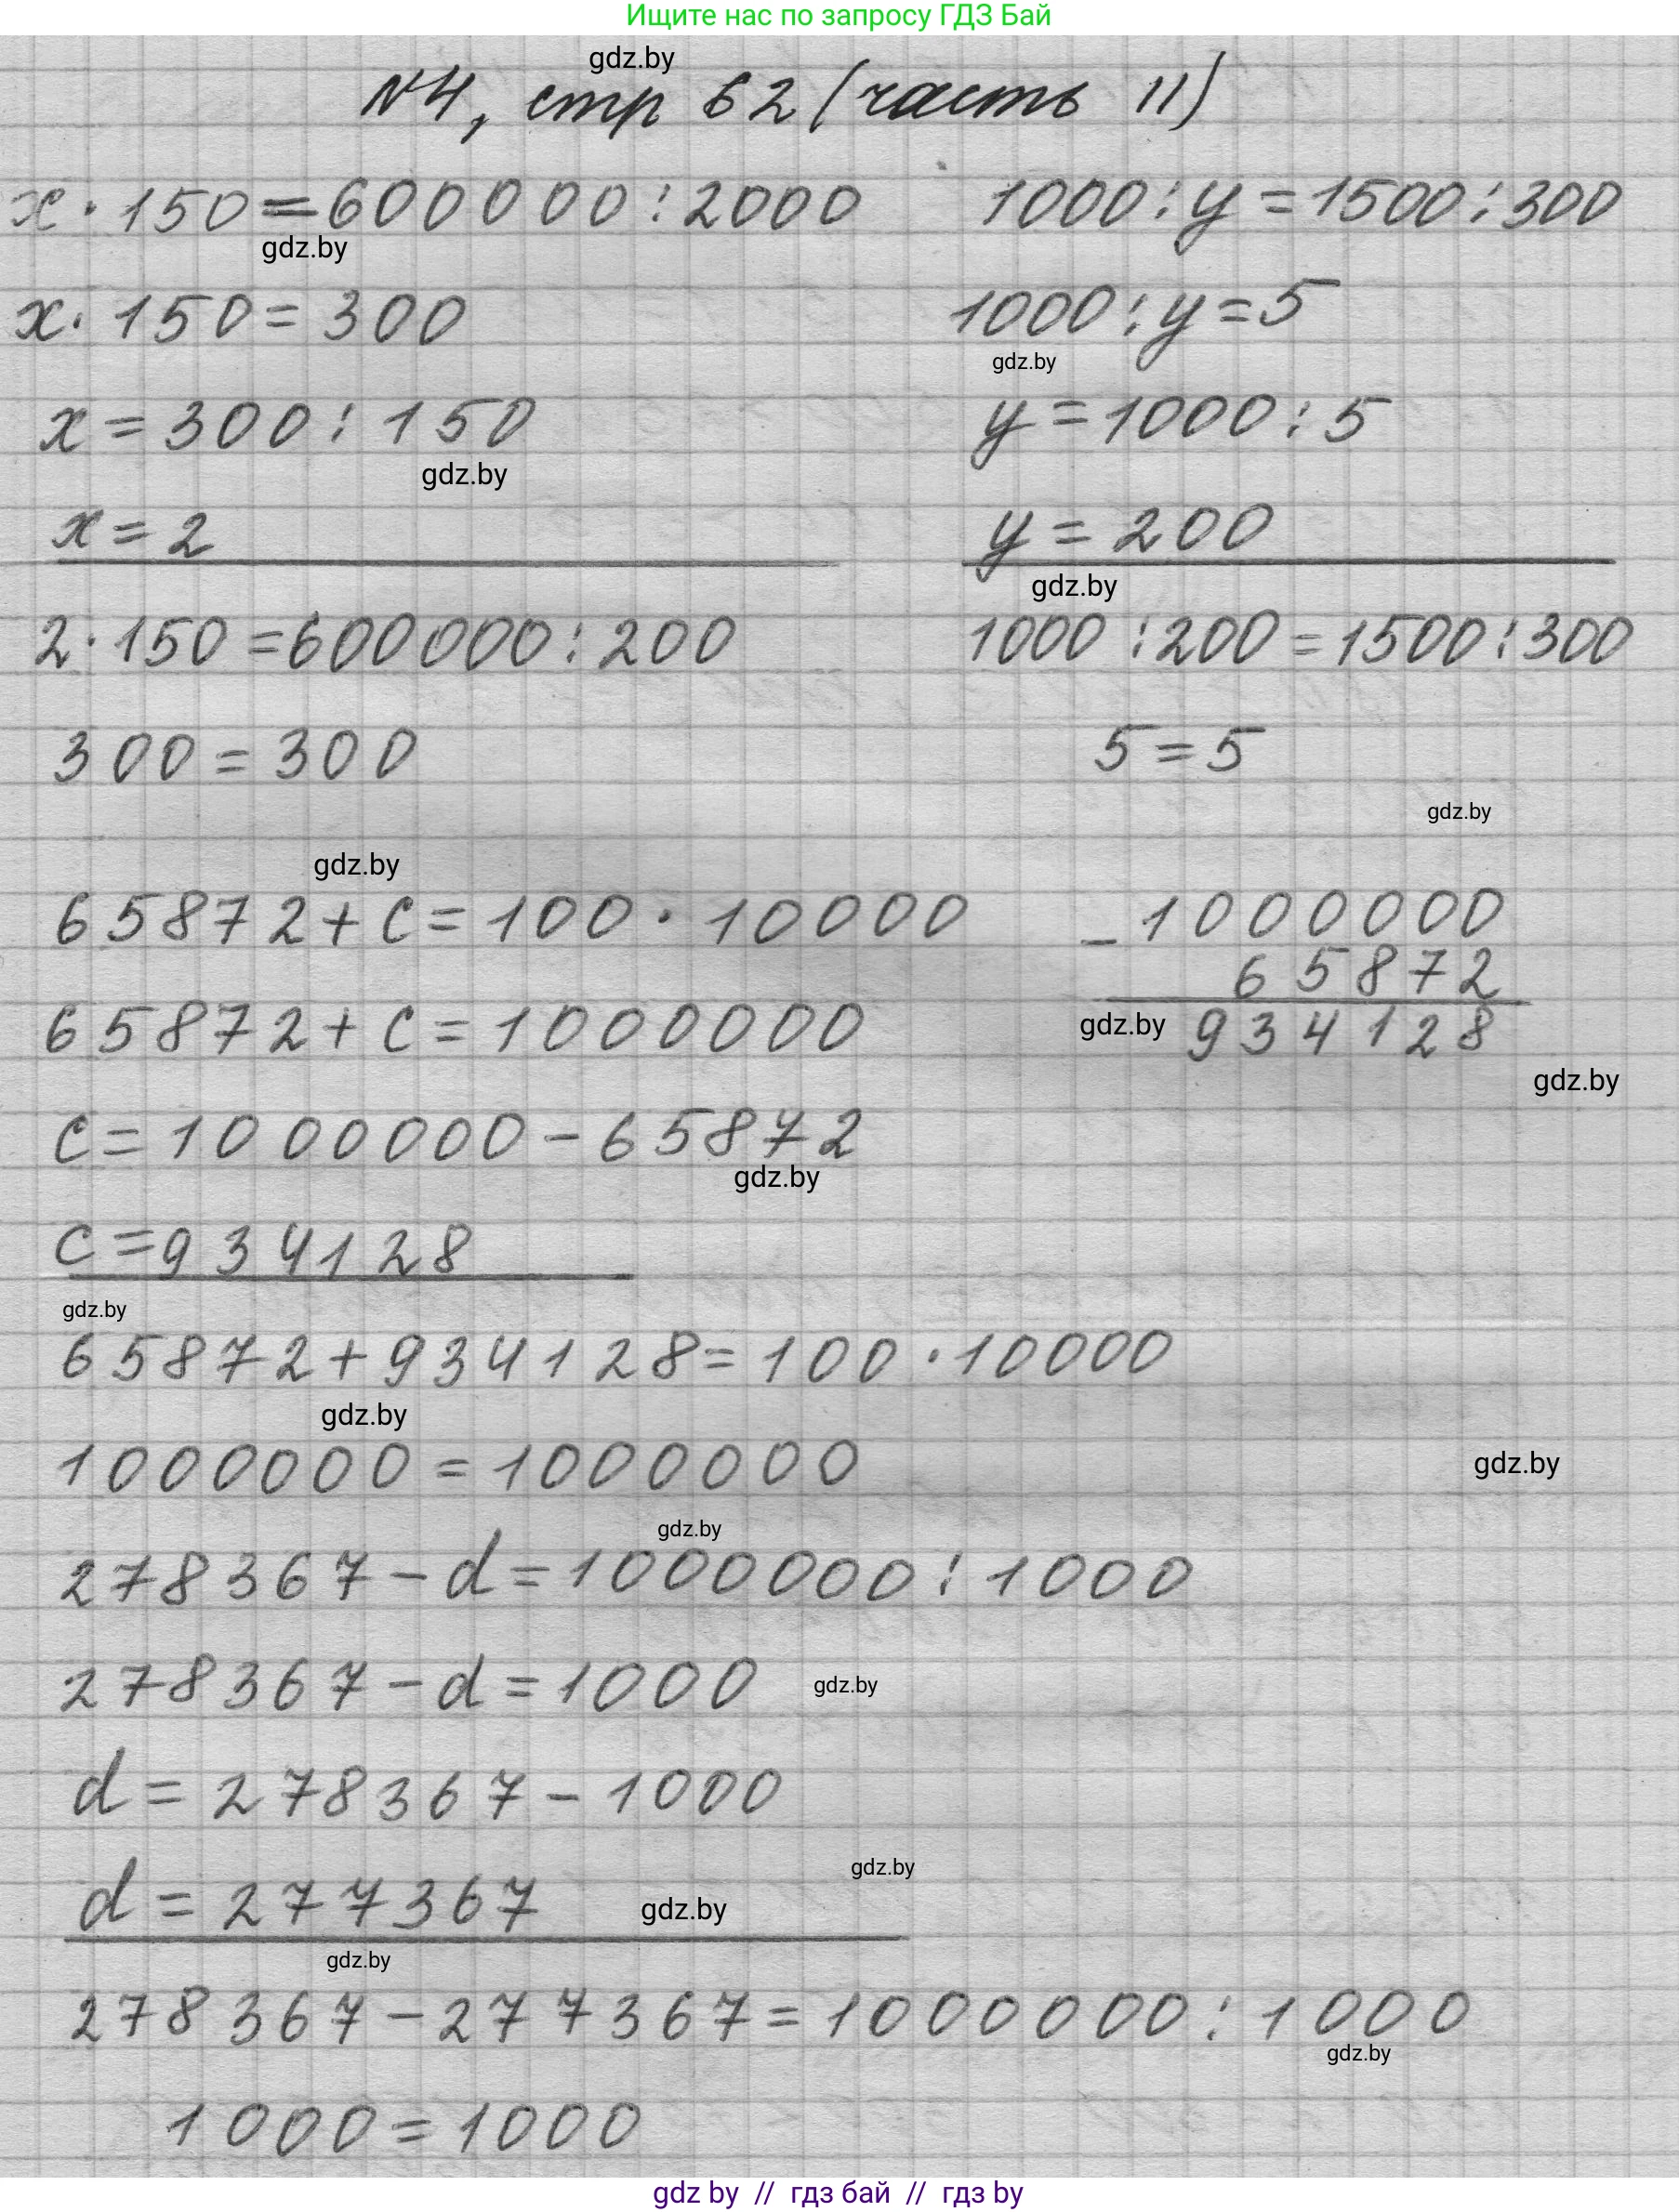 Ищите нас по запросу ГДЗ Бай
gdz.by
№4, стр 62 (часть II)
x · 150 = 600000 : 2000
gdz.by
x · 150 = 300
x = 300 : 150
gdz.by
x = 2
2 · 150 = 600000 : 200
300 = 300
1000 : y = 1500 : 300
1000 : y = 5
gdz.by
y = 1000 : 5
y = 200
gdz.by
1000 : 200 = 1500 : 300
5 = 5
gdz.by
gdz.by
65872 + c = 100 · 10000
65872 + c = 1000000
c = 1000000 - 65872
gdz.by
c = 934128
- 1000000
65872
gdz.by 934128
gdz.by
gdz.by
65872 + 934128 = 100 · 10000
gdz.by
1000000 = 1000000
gdz.by
gdz.by
278367 - d = 1000000 : 1000
278367 - d = 1000 gdz.by
d = 278367 - 1000
gdz.by
d = 277367 gdz.by
gdz.by
278367 - 277367 = 1000000 : 1000
gdz.by
1000 = 1000
gdz by // гдз бай // гдз by